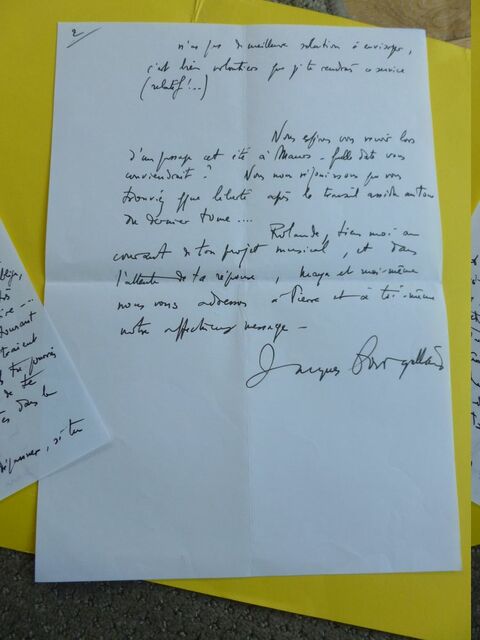 2
n'as pas de meilleure solution à envisager,
c'est bien volontiers que je te rendrais ce service
(relatif !..)
Nous espérons vous revoir lors
d'un passage cet été à Manos - quelle date vous
conviendrait ? Nous nous réjouissons que vous
trouviez liberté après le travail autour
du dernier tome ....
Rolande, tiens moi au
courant de ton projet musical, et dans
l'attente de ta réponse, Maya et moi-même
nous vous adressons à Pierre et à toi-même
notre affectueux message -
Jacques
tu pourrais
de te
dans le
si tu